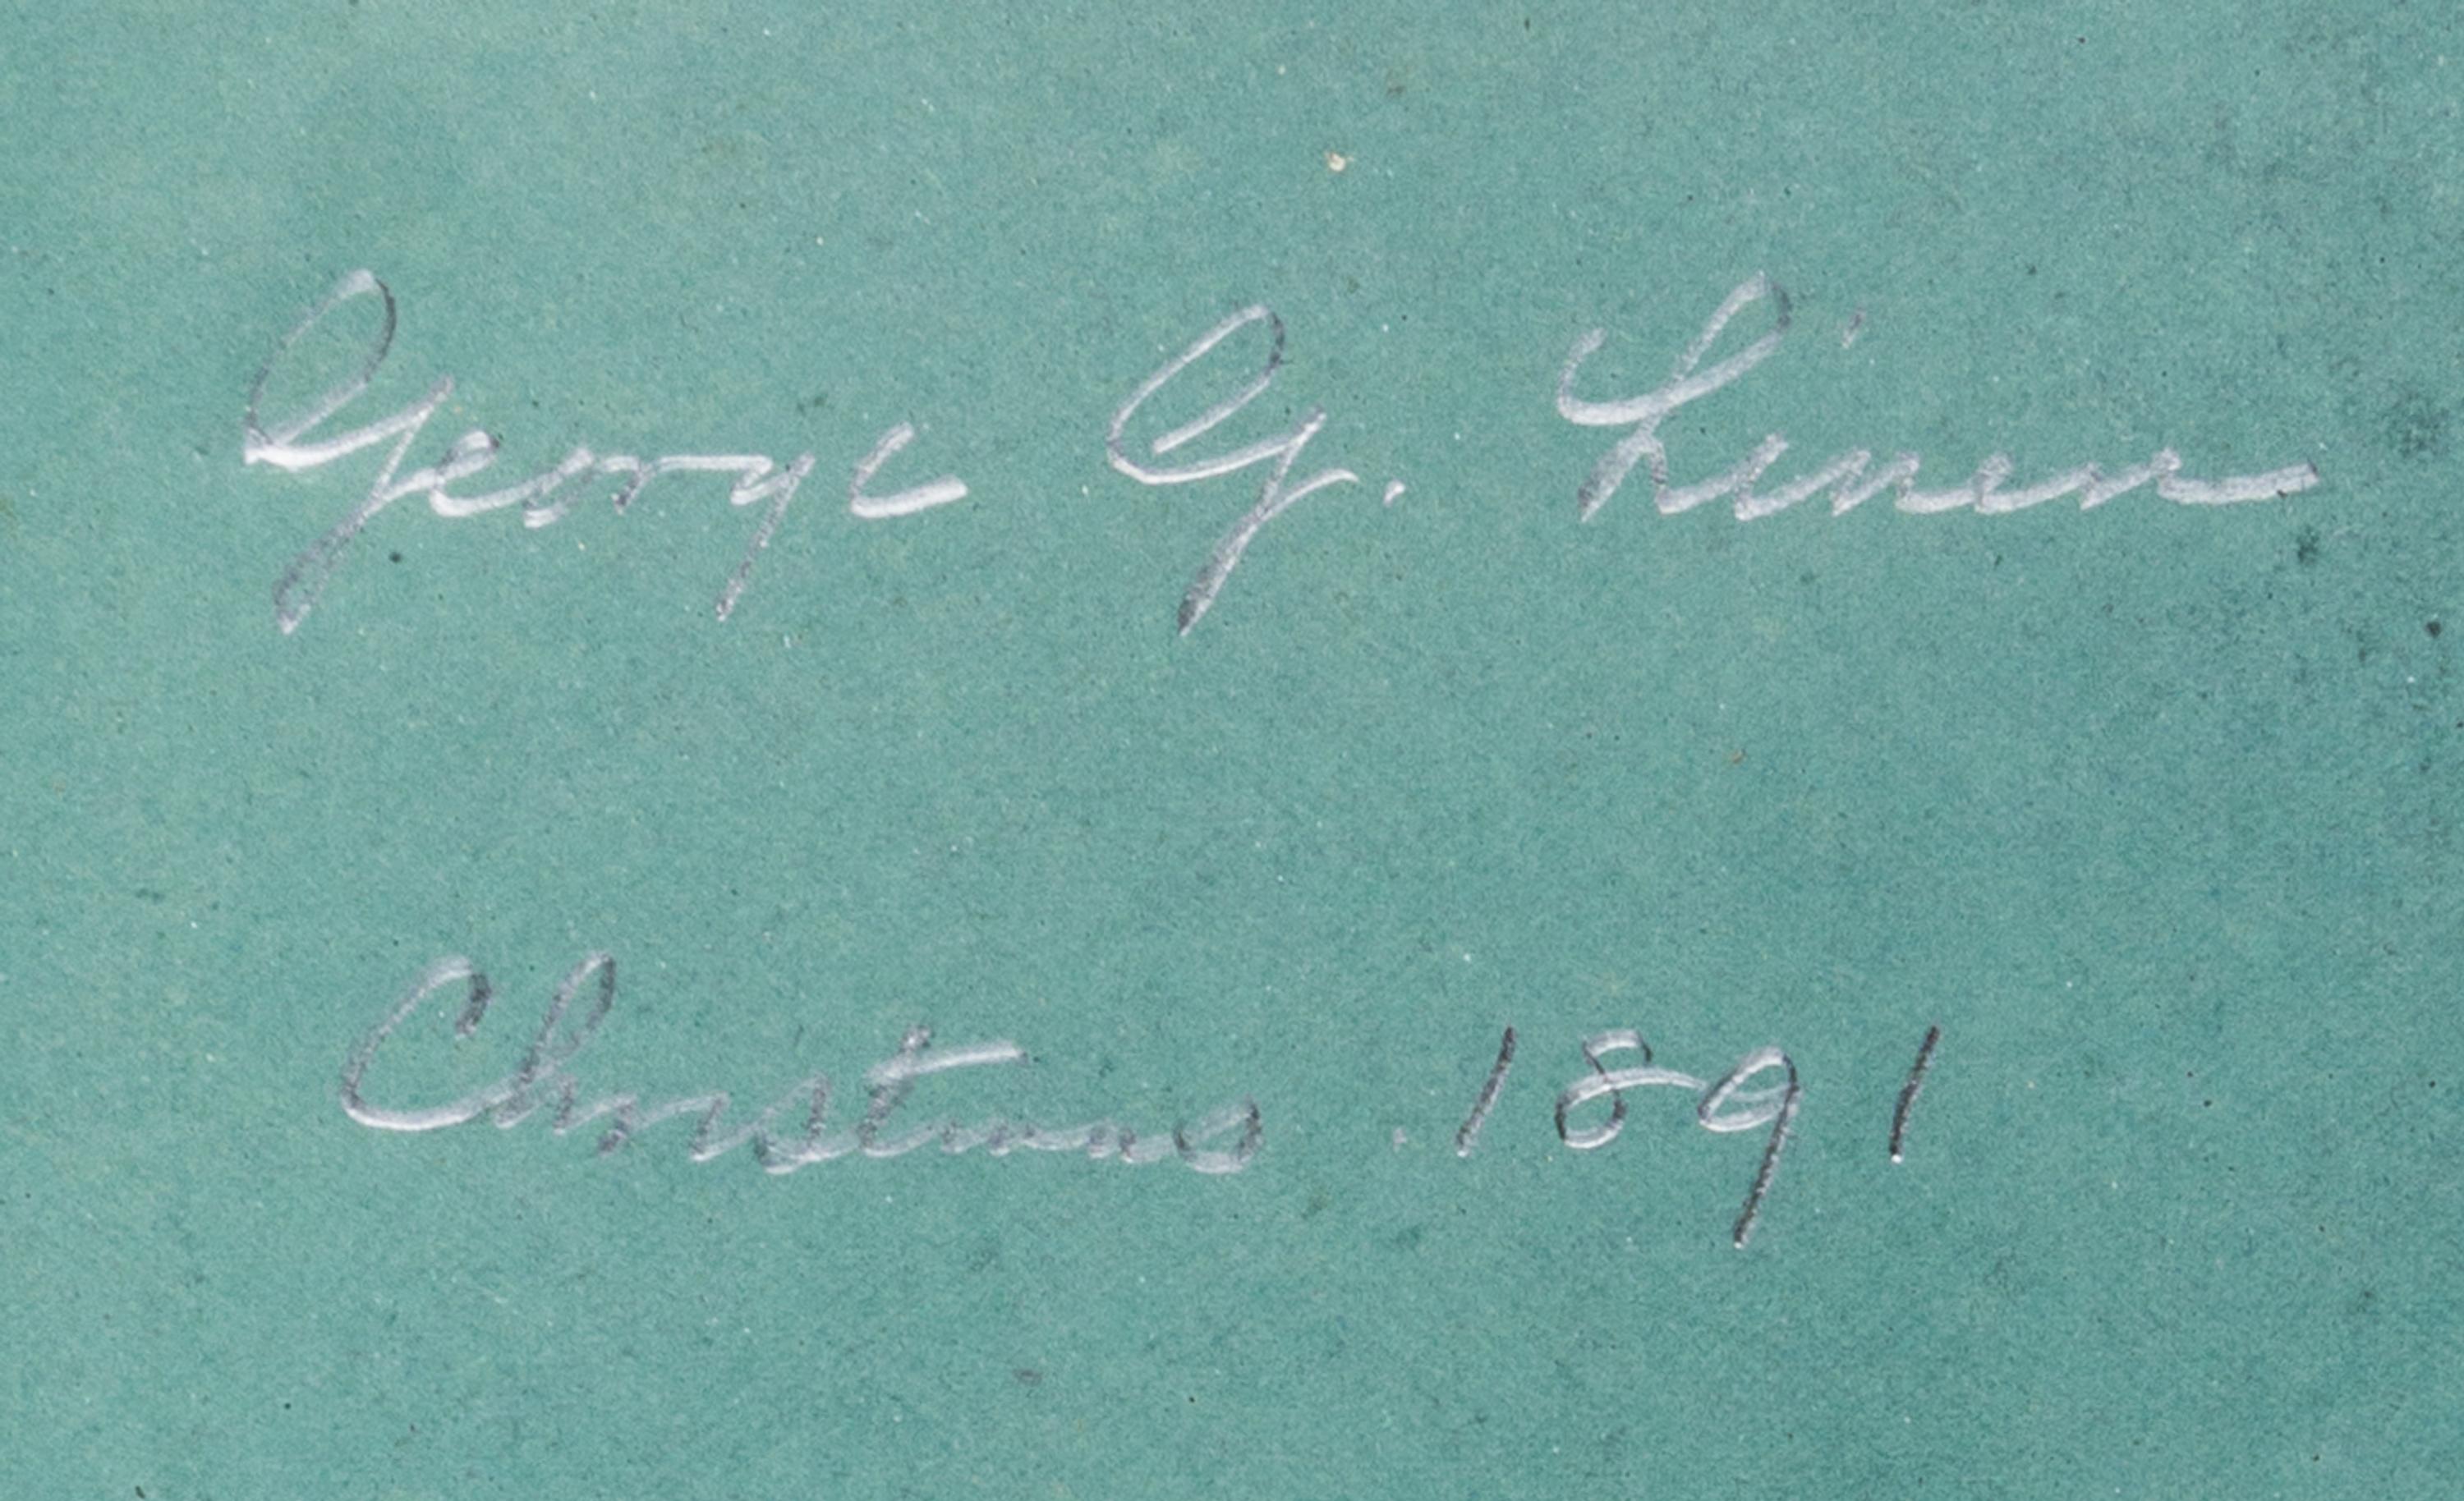 George G. Linen
Christmas 1891